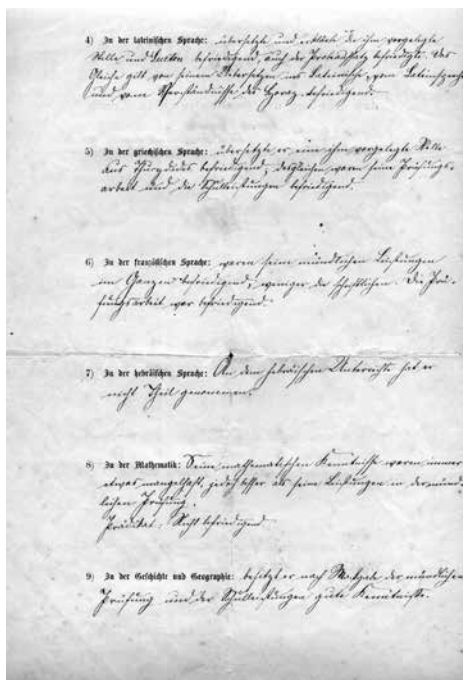 4) In der lateinischen Sprache: übersetzte und erklärte die ihm vorgelegte
Stelle und befriedigend, auch der befriedigte. Das
Gleiche gilt von seinem Übersetzen ins Lateinische, vom Lateinsprechen
und vom Verständnisse des Horaz. befriedigend.
5) In der griechischen Sprache: übersetzte er eine ihm vorgelegte Stelle
aus Thucydides befriedigend, desgleichen waren seine Prüfungs-
arbeit und die Schulleistungen befriedigend.
6) In der französischen Sprache: waren seine mündlichen Leistungen
im Ganzen befriedigend, weniger die schriftlichen. Die Prü-
fungsarbeit war befriedigend.
7) In der hebräischen Sprache: An dem hebräischen Unterrichte hat er
nicht Theil genommen.
8) In der Mathematik: Seine mathematischen Kenntnisse waren immer
etwas mangelhaft, jedoch besser als seine Leistungen in der münd-
lichen Prüfung.
Prädikat: Nicht befriedigend
9) In der Geschichte und Geographie: besitzt er nach Maßgabe der mündlichen
Prüfung und der Schulleistungen gute Kenntnisse.